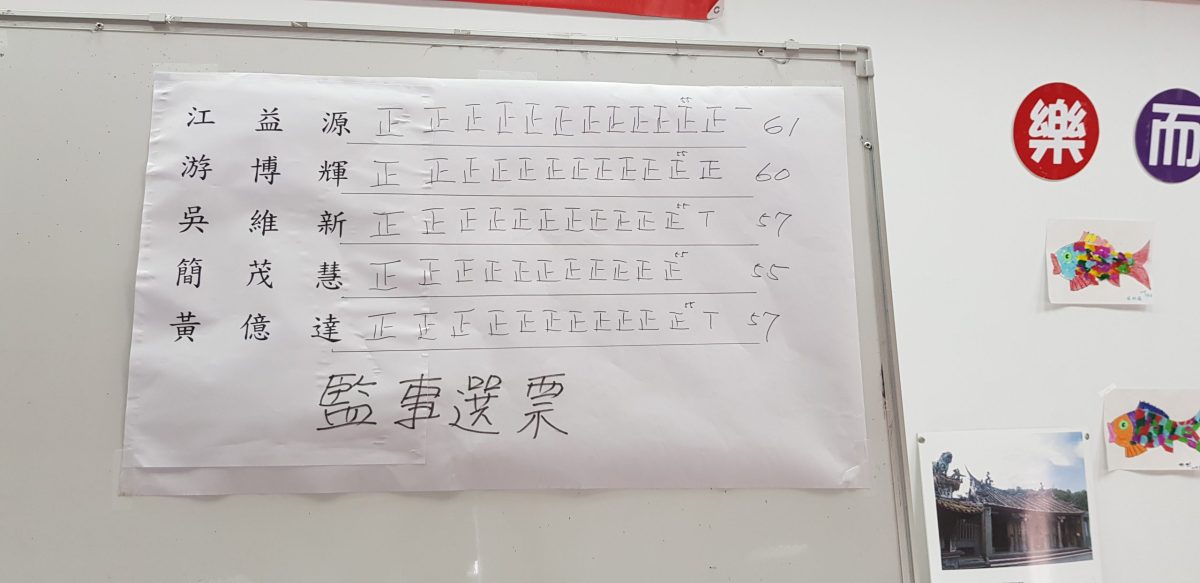 江益源 正正正正正正正正正正正55正一 61
游博輝 正正正正正正正正正正正55正 60
吳維新 正正正正正正正正正正正55丅 57
簡茂慧 正正正正正正正正正正正55 55
黃億達 正正正正正正正正正正正55丅 57
監事選票
樂而